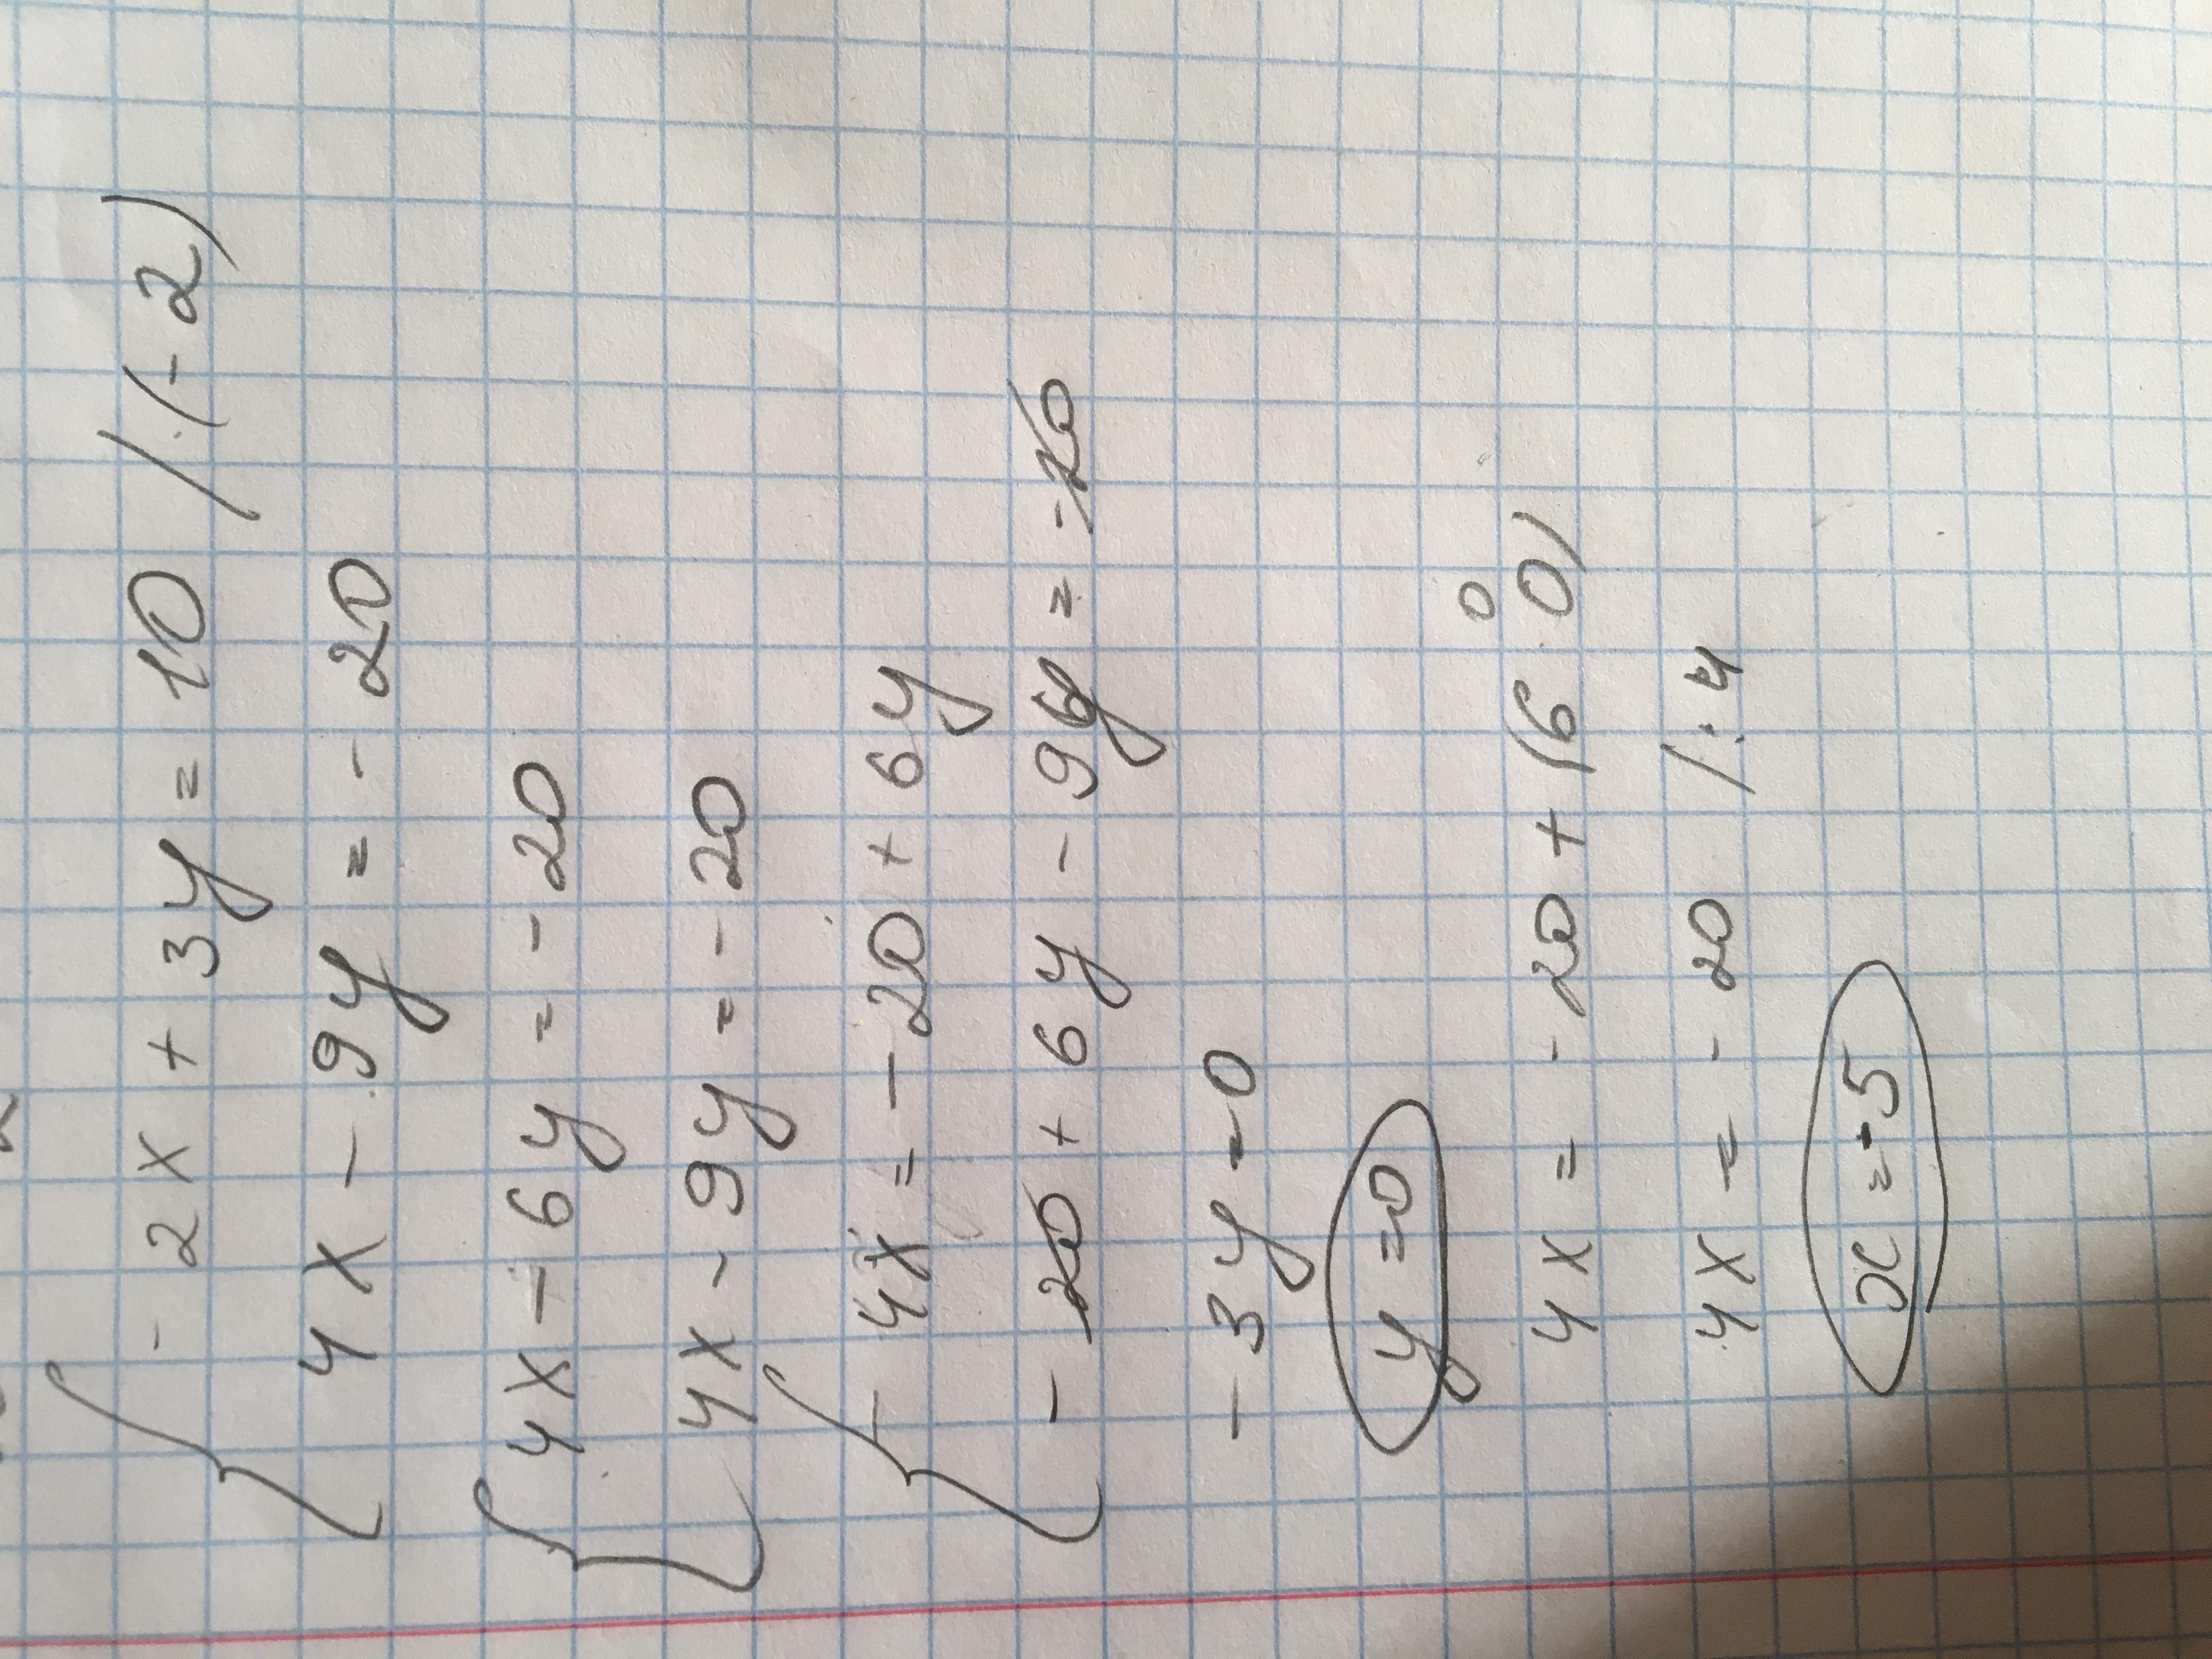 - 2x + 3y = 10 /·(-2)
4x - 9y = - 20
4x - 6y = - 20
4x - 9y = - 20
4x = - 20 + 6y
- 20 + 6y - 9y = - 20
- 3y = 0
y = 0
0
4x = - 20 + (6·0)
4x = - 20 /:4
x = -5